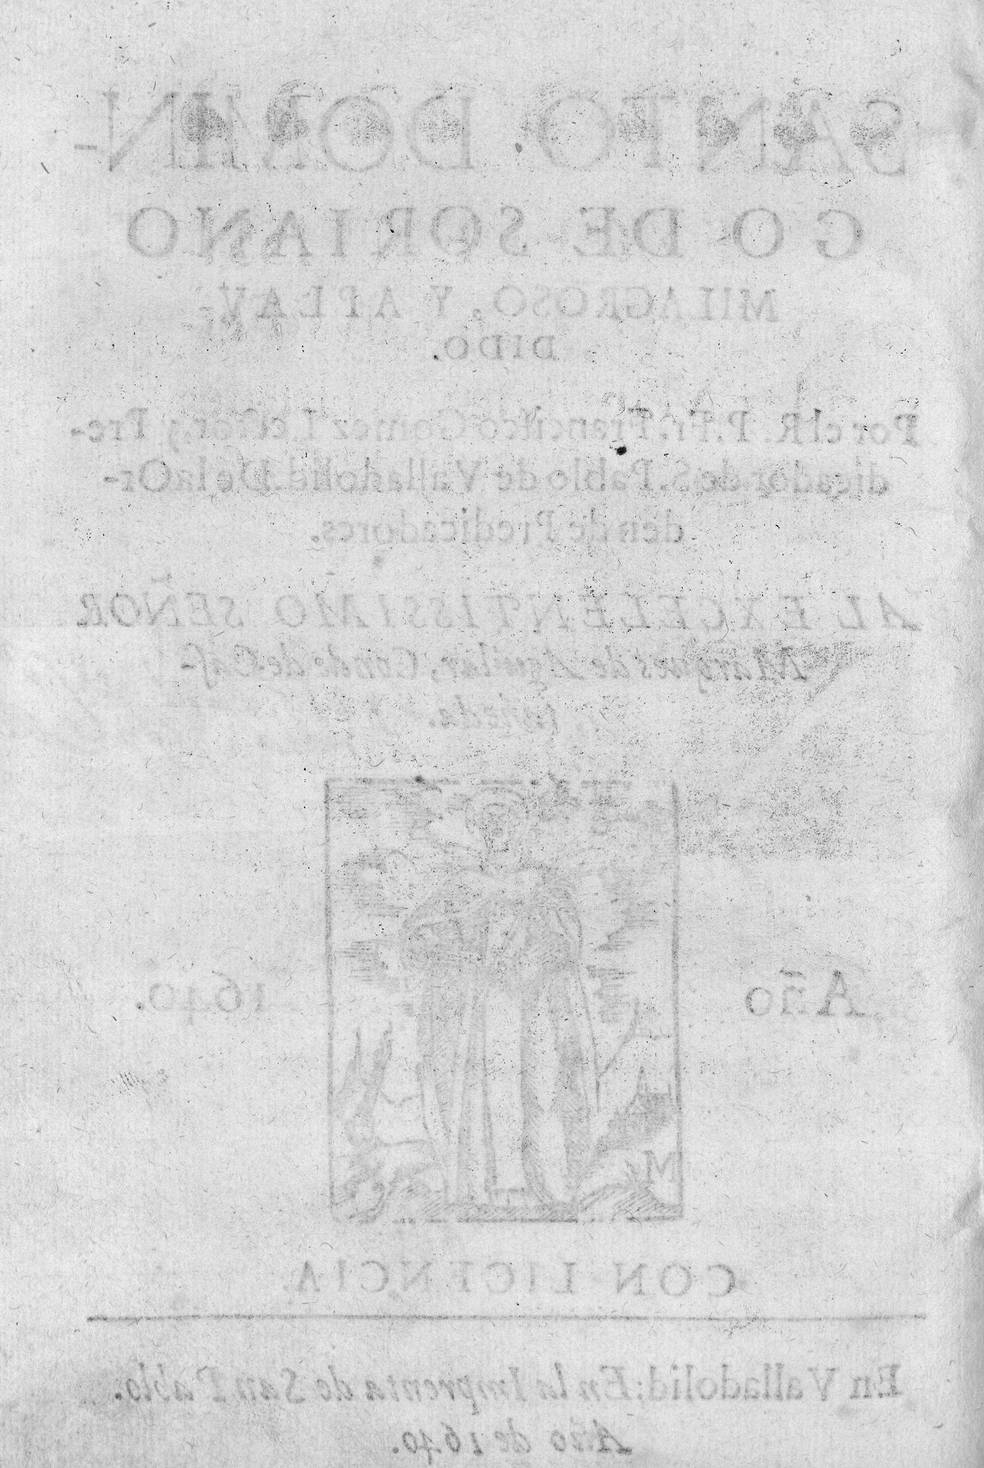 SANTO DOMIN-
GO DE SORIANO
MILAGROSO, Y APLAV-
DIDO.
Por el R. P. Fr. Francisco Gomez Lector, y Pre-
dicador de S. Pablo de Valladolid. De la Or-
den de Predicadores.
AL EXCELENTISSIMO SEÑOR
Marques de Aguilar, Conde de Cas-
tañeda.
Año 1640.
M
CON LICENCIA
En Valladolid; En la Imprenta de San Pablo.
Año de 1640.